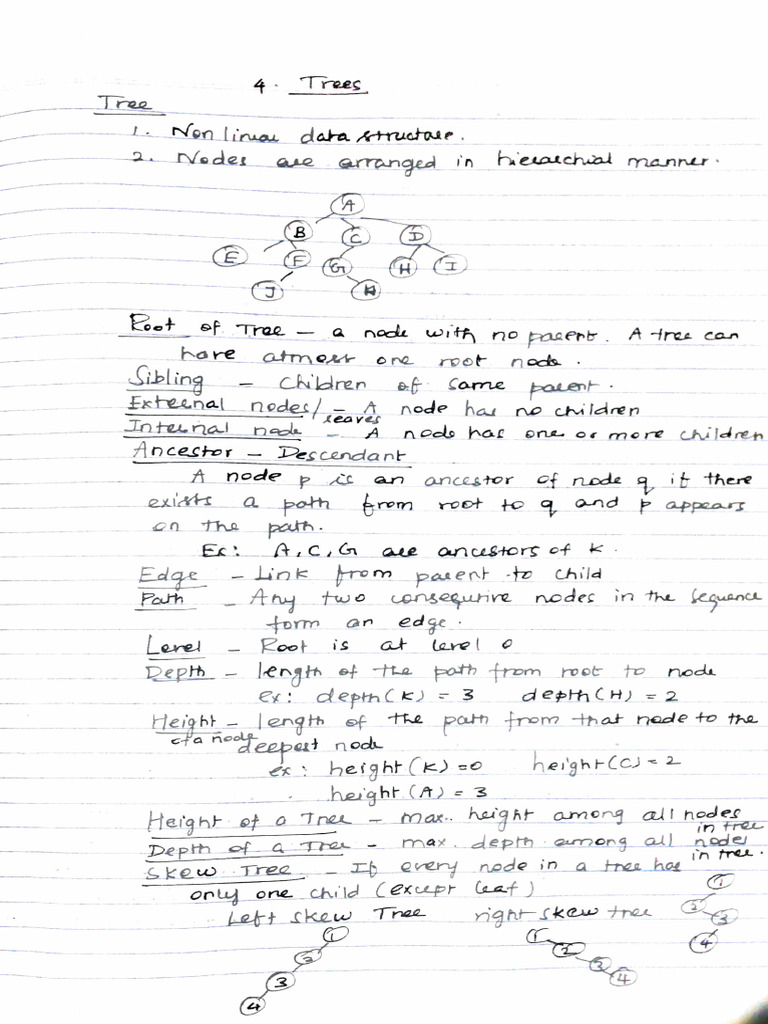 4. Trees
Tree
1. Non linear data structure.
2. Nodes are arranged in hierarchial manner.
A
B C D
E F G H I
J K
Root of Tree – a node with no parent. A tree can
have atmost one root node.
Sibling – Children of same parent.
External nodes/ leaves – A node has no children
Internal node – A node has one or more children
Ancestor – Descendant
A node p is an ancestor of node q if there
exists a path from root to q and p appears
on the path.
Ex: A, C, G are ancestors of K.
Edge – Link from parent to child
Path – Any two consequtive nodes in the sequence
form an edge.
Level – Root is at level 0
Depth – length of the path from root to node
ex: depth(K) = 3 depth(H) = 2
Height of a node – length of the path from that node to the
deepest node
ex: height(K) = 0 height(C) = 2
height(A) = 3
Height of a Tree – max. height among all nodes in tree
Depth of a Tree – max. depth among all nodes in tree.
Skew Tree – If every node in a tree has
only one child (except leaf)
Left skew Tree right skew tree
1 2 3 4
1 2 3 4
1 2 3 4